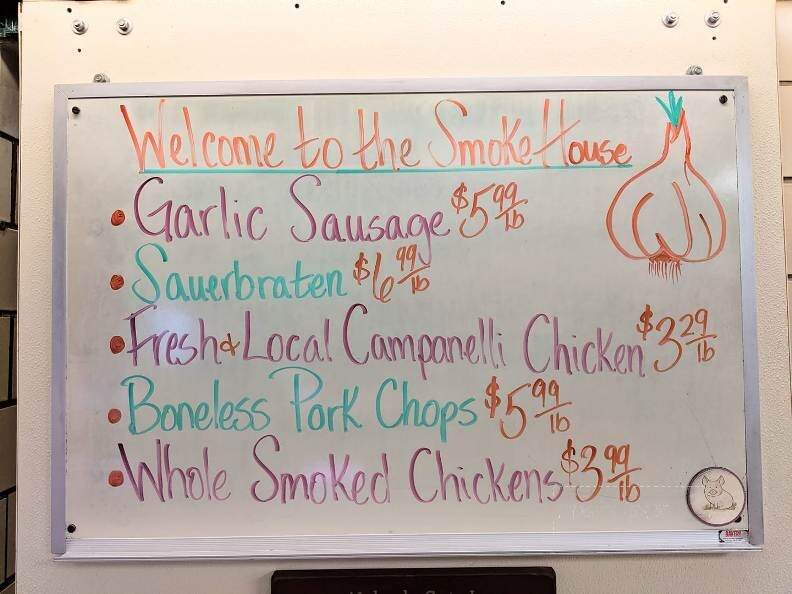 Welcome to the SmokeHouse
• Garlic Sausage $5.99/lb
• Sauerbraten $6.99/lb
• Fresh & Local Campanelli Chicken $3.29/lb
• Boneless Pork Chops $5.99/lb
• Whole Smoked Chickens $3.99/lb